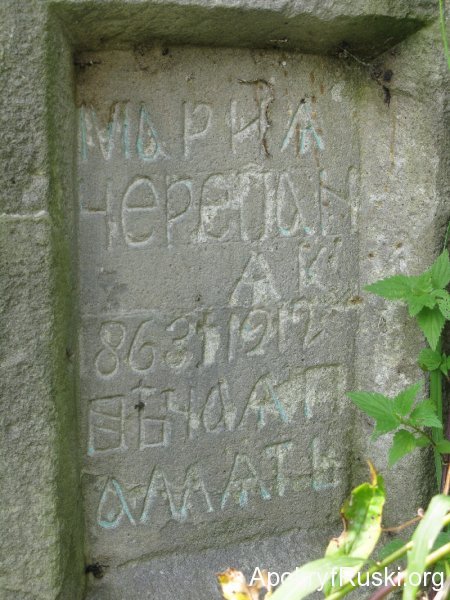 МАРИА
ЧЕРЕПАН
АК
863†1912
ВѢЧААП
АМАТЬ
ApokryfRuski.org